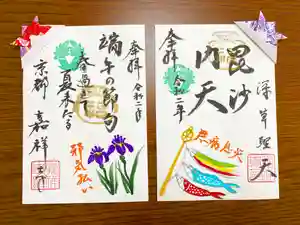 奉拝
令和二年
端午の節句
春過ぎ
夏来たる
邪気払い
京都
嘉祥寺
奉拝
令和二年
毘沙
門天
深草聖天
無病息災